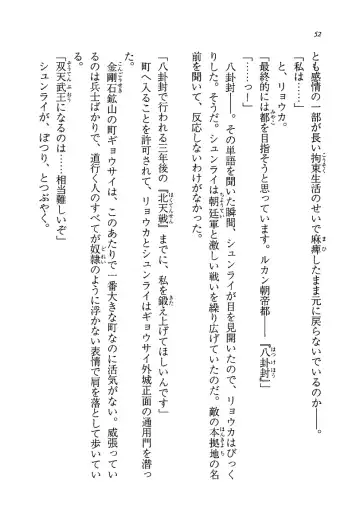 52
とも感情の一部が長い拘束生活のせいで麻痺したまま元に戻らないでいるのか――。
「私は……」
と、リョウカ。
「最終的には都を目指そうと思っています。ルカン朝帝都――『八卦封』」
「……っ――」
八卦封――。その単語を聞いた瞬間、シュンライが目を見開いたので、リョウカはびっく
りした。そうだ。シュンライは朝廷軍と激しい戦いを繰り広げていたのだ。敵の本拠地の名
前を聞いて、反応しないわけがなかった。
「八卦封で行われる三年後の『北天戦』までに、私を鍛え上げてほしいんです」
町へ入ることを許可されて、リョウカとシュンライはギョウサイ外城正面の通用門を潜っ
た。
金剛石鉱山の町ギョウサイは、このあたりで一番大きな町なのに活気がない。威張ってい
るのは兵士ばかりで、道行く人のすべてが奴隷のように浮かない表情で肩を落として歩いてい
る。
「双天武王になるのは……相当難しいぞ」
シュンライが、ぽつり、とつぶやく。